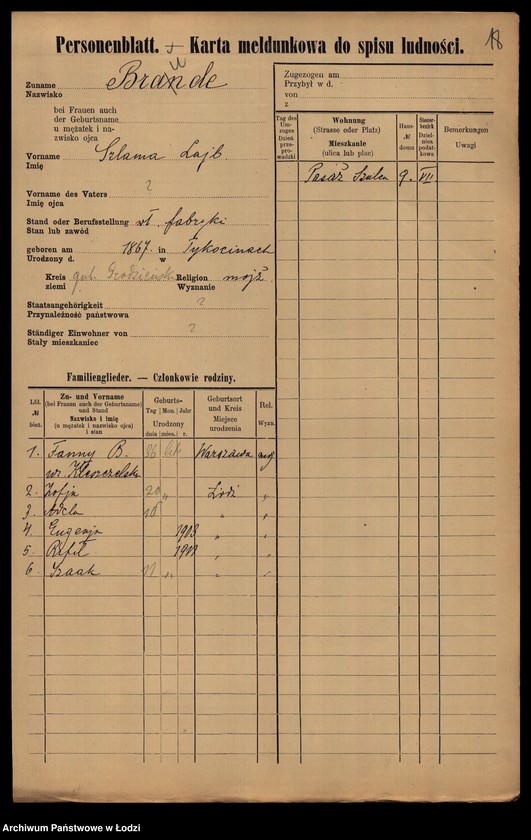 18
Personenblatt. + Karta meldunkowa do spisu ludności.
Zuname
Nazwisko
Brande
bei Frauen auch
der Geburtsname
u mężatek i na-
zwisko ojca
Vorname Szlama Lajb.
Imię
Vorname des Vaters ?
Imię ojca
Stand oder Berufsstellung wł. fabryki
Stan lub zawód
geboren am 1867. in Tykocinach
Urodzony d. w
Kreis gub. Grodzieńsk. Religion mojż
ziemi Wyznanie
Staatsangehörigkeit ?
Przynależność państwowa
Ständiger Einwohner von ?
Stały mieszkaniec
Familienglieder. — Członkowie rodziny.
Lfd. № bież.
Zu- und Vorname
(bei Frauen auch der Geburtsname)
und Stand
Nazwisko i imię
(u mężatek i nazwisko ojca)
i stan
Geburts-
Tag Mon. Jahr
Urodzony
dnia mies. r.
Geburtsort
und Kreis
Miejsce
urodzenia
Rel.
Wyzn.
1. Fanny B. 36 lat Warszawa mojż
wł.
2. Zofja 20 „ Łódź „
3. Adela 18 „ „
4. Eugenja 1903 „ „
5. 
6. Izaak 17 „ „ „
Zugezogen am
Przybył w d.
von
z
Tag des Um-
zuges
Dzień
prze-
prowadzki
Wohnung
(Strasse oder Platz)
Mieszkanie
(ulica lub plac)
Haus-
№
domu
Steuer-
bezirk
Dziel-
nica
podat-
kowa
Bemerkungen
Uwagi
Pasaż Szulca 9. VII
Archiwum Państwowe w Łodzi